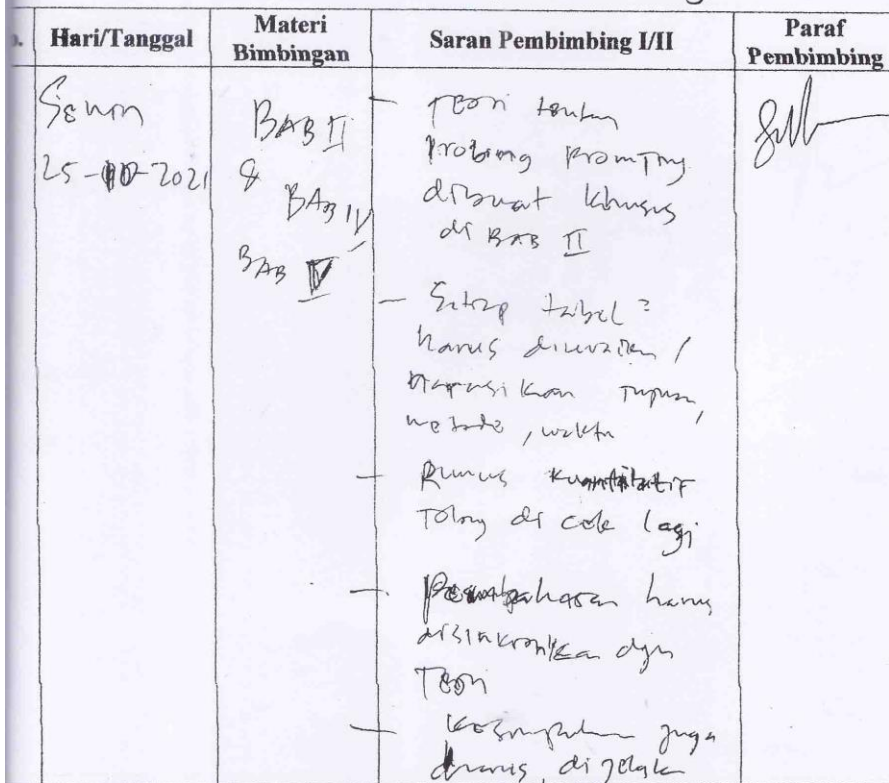 Hari/Tanggal Materi Bimbingan Saran Pembimbing I/II Paraf Pembimbing
Senin
25-10-2021
BAB II
&
BAB IV
BAB V
- Teori tentan
Probing Promting
dibuat khusus
di BAB II
- Setiap tabel ²
harus diuraikan /
tujuan,
metode, waktu
- Rumus kuantitatif
Tolong di cek lagi
- Pembahasan harus
disinkronkan dgn
Teori
- Kesimpulan juga
harus di jelak